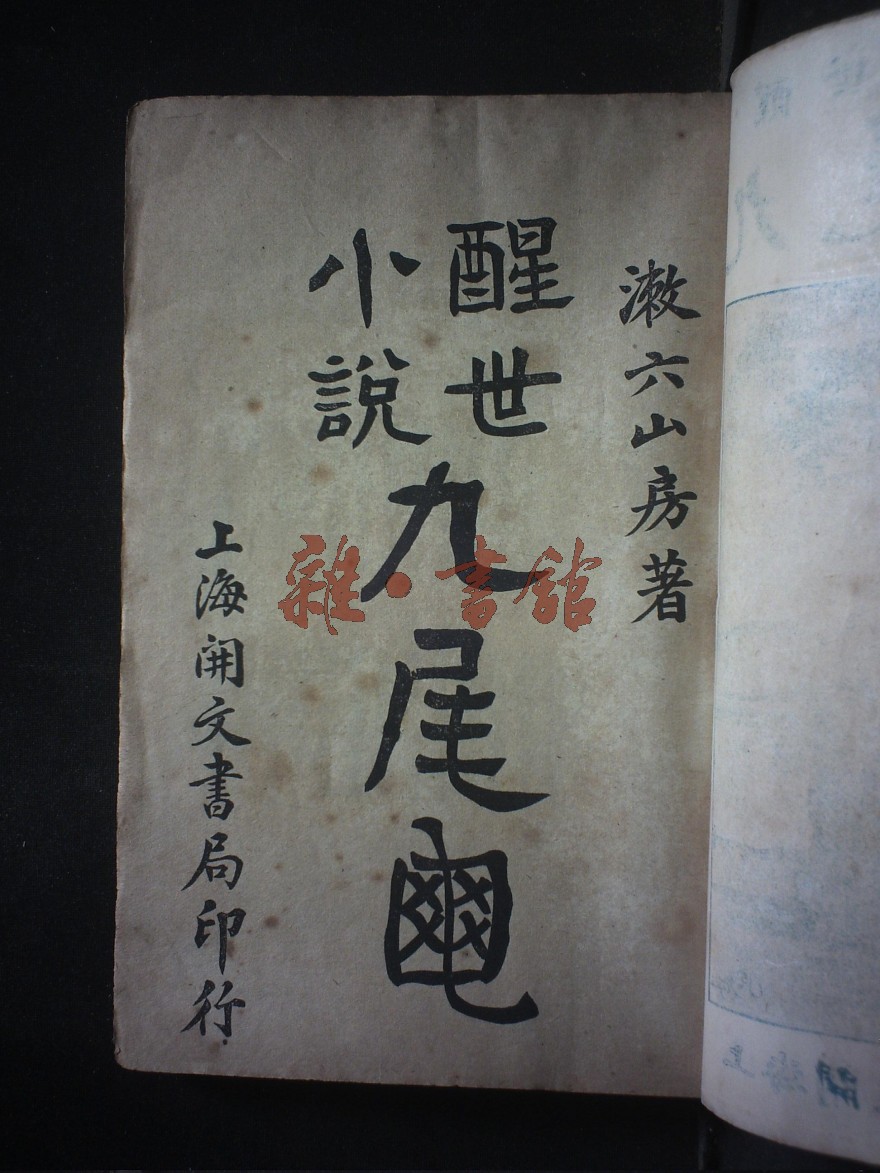 漱六山房著
醒世
小說
九尾龜
上海開文書局印行
雜·書館